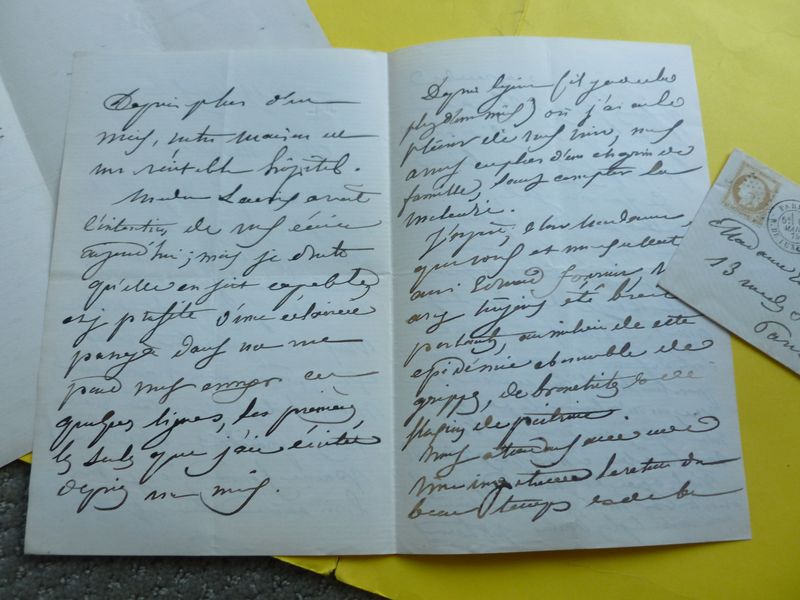 Depuis plus d'un
mois, notre maison est
un véritable hôpital.
Madame avait
l'intention de vous écrire
aujourd'hui; mais je doute
qu'elle en soit capable,
et je profite d'une éclaircie
passagère dans
pour vous envoyer ces
quelques lignes, les premières,
les seules que j'aie écrites
depuis un mois.
Depuis (il y a de cela
plus d'un mois) où j'ai eu le
plaisir de vous voir, nous
avons eu plus d'un chagrin de
famille, sans compter la
maladie.
J'espère, chère Madame,
que vous et
ami Edouard Fournier
avez toujours été bien
portants, au milieu de cette
épidémie abominable de
grippes, de bronchites et de
fluxions de poitrine.
Nous attendons avec une
vive impatience le retour du
beau temps
PARIS
MAI
Madame
13 rue
Paris